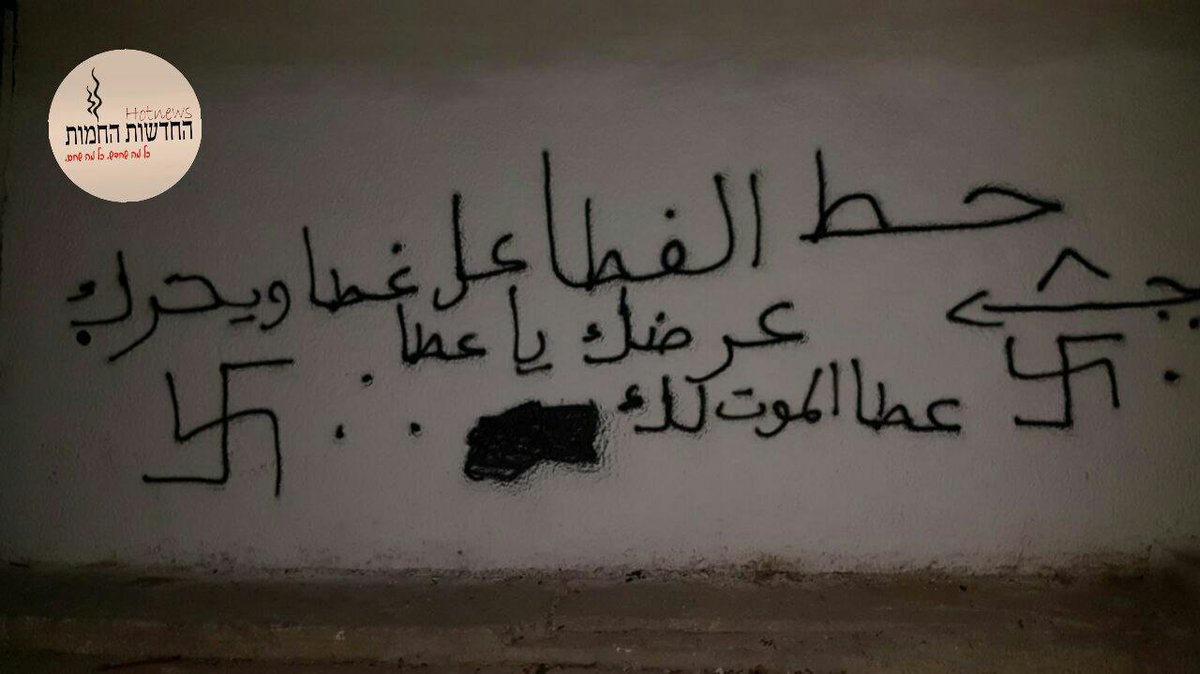 Hotnews
החדשות החמות
כל מה שחדש. כל מה שחם.
حط الغطا عل غطا ويحرك
عرضك يا عطا
عطا الموت لك